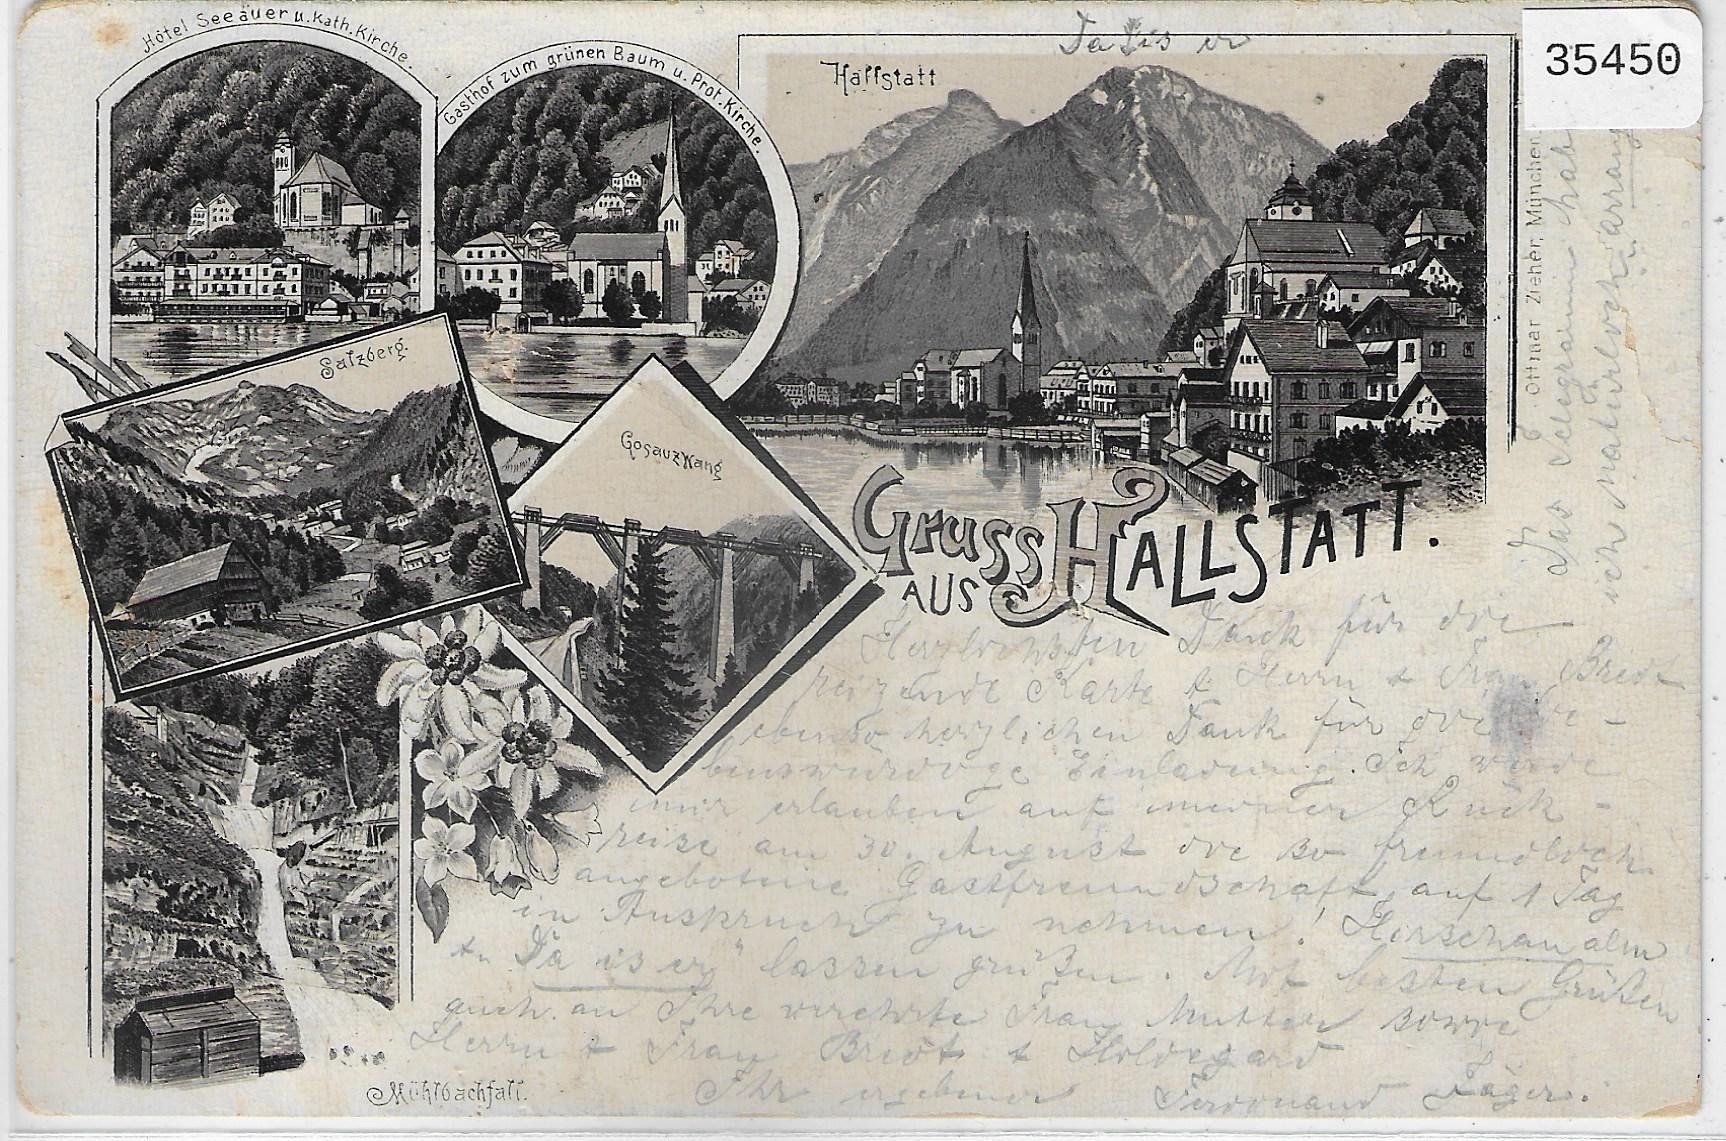 35450
Hôtel Seeäuer u. Kath. Kirche.
Gasthof zum grünen Baum u. Prot. Kirche.
Da is er
Hallstatt
Salzberg.
Gosauzwang
Gruss
aus Hallstatt.
Mühlbachfall.
Ottmar Zieher, München
Herzlichsten Dank für die
reizende Karte & Herrn & Frau Breit
ebenso herzlichen Dank für die lie-
benswürdige Einladung. Ich werde
mir erlauben auf meiner Rück-
reise am 30. August die so freundlich
angebotene Gastfreundschaft auf 1 Tag
in Anspruch zu nehmen! Hirschau alm
"Da is er" lassen grüßen. Mit besten Grüßen
auch an Ihre verehrte Frau Mutter sowie
Herrn & Frau Breit & Hildegard
Ihr ergebener Ferdinand Jäger.
Das Telegramm hab
ich natürlich arrang